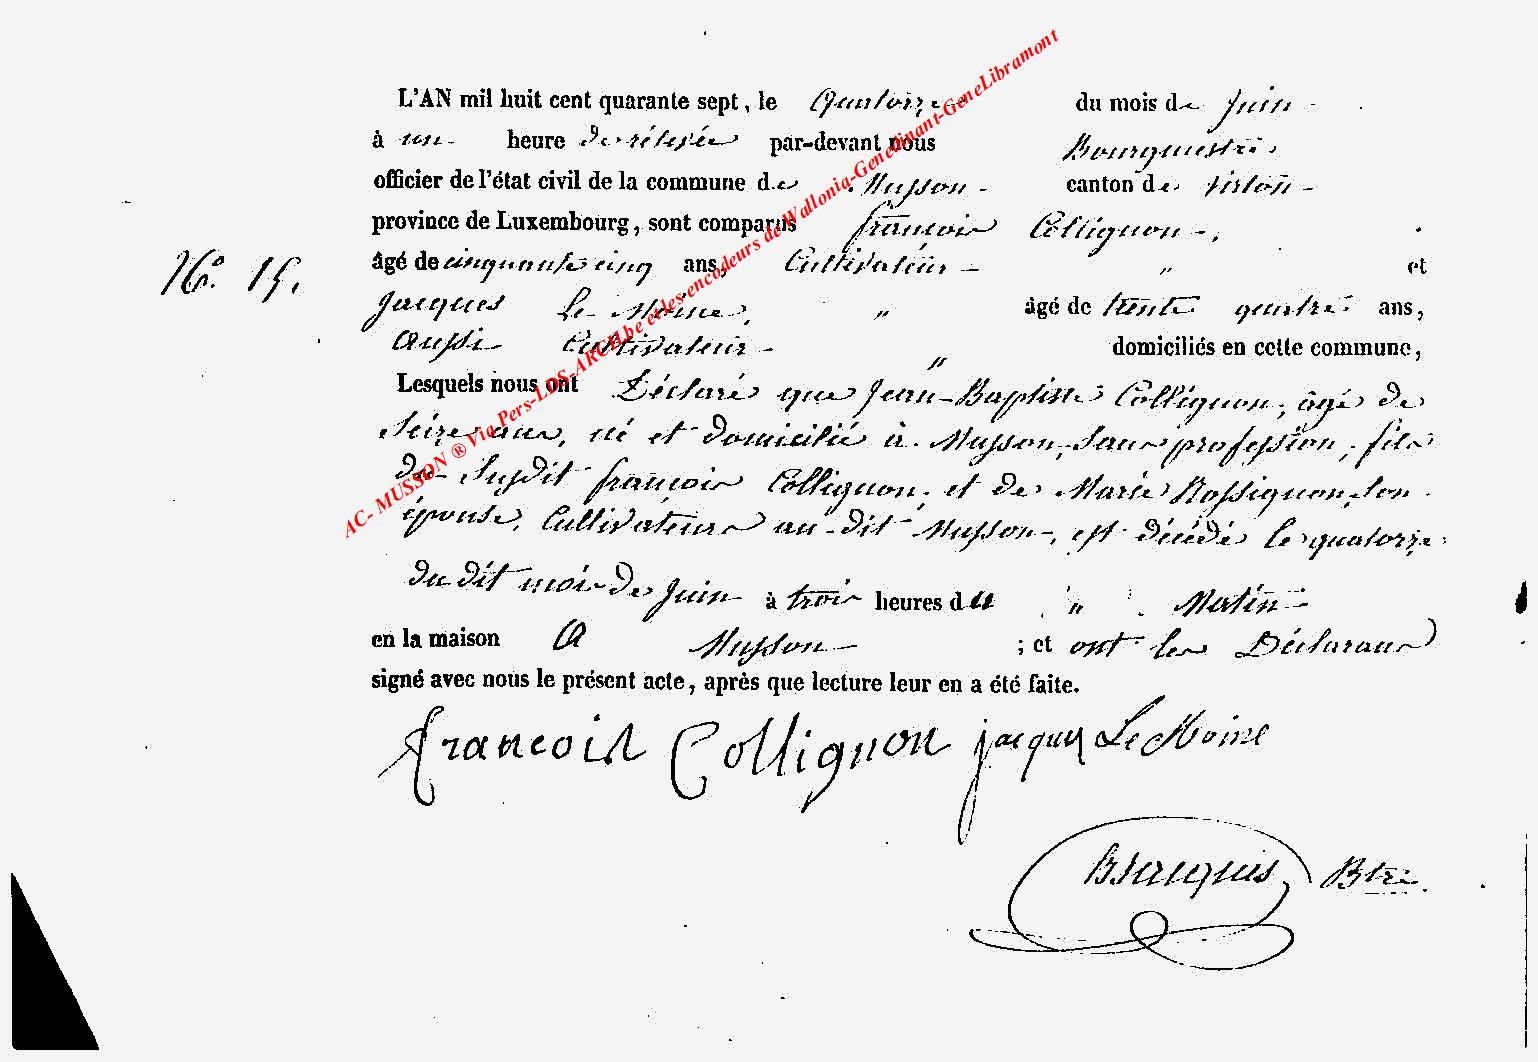 L'AN mil huit cent quarante sept, le Quatorze du mois de Juin
à un heure de rélevée par-devant nous Bourguestre
officier de l'état civil de la commune de Musson canton de virton
province de Luxembourg, sont comparus françois Collignon,
âgé de cinquante cinq ans, Cultivateur " et
N.° 15.
Jacques Le Moine, " âgé de trente quatre ans,
aussi Cultivateur " domiciliés en cette commune,
Lesquels nous ont Déclaré que Jean-Baptiste Collignon, âgé de
Seize ans, né et domicilié à Musson, sans profession, fils
du Susdit françois Collignon, et de Marie Rossignon, son
épouse, Cultivateurs au dit Musson, est décédé le quatorze
du dit mois de Juin à trois heures du " Matin
en la maison a Musson ; et ont les Déclarans
signé avec nous le présent acte, après que lecture leur en a été faite.
francois Collignon jacques Le Moine
Btre.
AC- MUSSON ® Via Pers-LDS-ARCH.be et les encodeurs de Wallonia-Genedinant-GeneLibramont